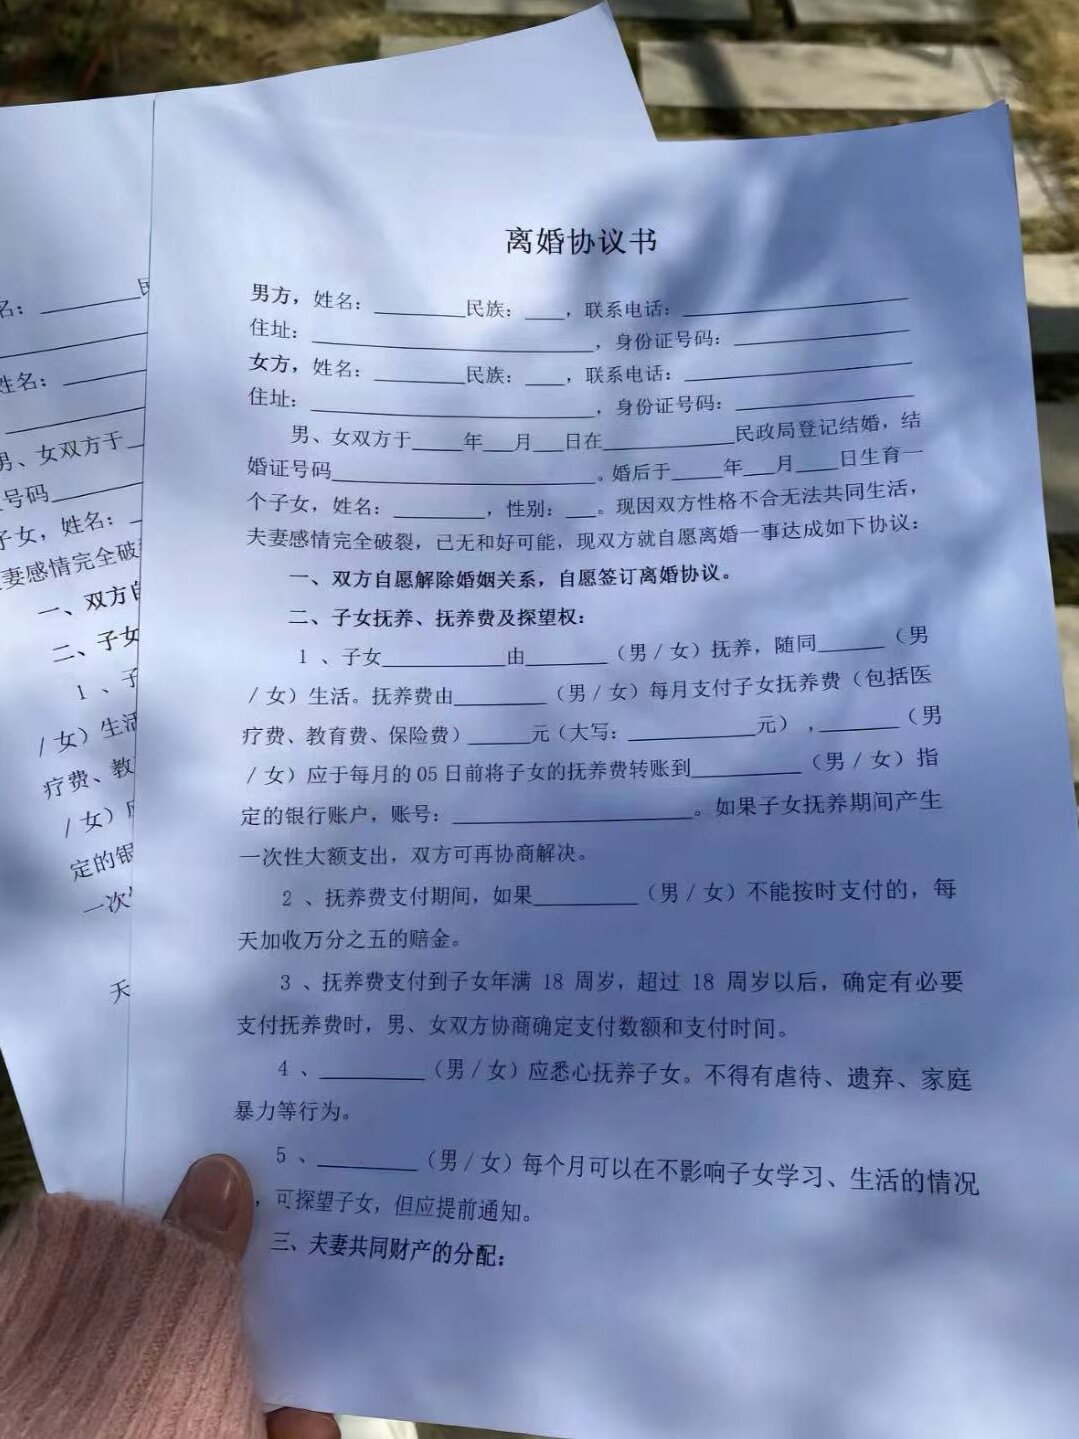 离婚协议书
男方，姓名：________民族：___，联系电话：____________________
住址：_________________________，身份证号码：________________
女方，姓名：________民族：___，联系电话：____________________
住址：_________________________，身份证号码：________________
男、女双方于____年__月__日在____________民政局登记结婚，结
婚证号码________________________。婚后于____年__月___日生育一
个子女，姓名：________，性别：__。现因双方性格不合无法共同生活，
夫妻感情完全破裂，已无和好可能，现双方就自愿离婚一事达成如下协议：
一、双方自愿解除婚姻关系，自愿签订离婚协议。
二、子女抚养、抚养费及探望权：
1 、子女___________由_______（男/女）抚养，随同______（男
/女）生活。抚养费由________（男/女）每月支付子女抚养费（包括医
疗费、教育费、保险费）_____元（大写：___________元），_______（男
/女）应于每月的05日前将子女的抚养费转账到__________（男/女）指
定的银行账户，账号：_____________________。如果子女抚养期间产生
一次性大额支出，双方可再协商解决。
2 、抚养费支付期间，如果___________（男/女）不能按时支付的，每
天加收万分之五的赔金。
3 、抚养费支付到子女年满 18 周岁，超过 18 周岁以后，确定有必要
支付抚养费时，男、女双方协商确定支付数额和支付时间。
4 、_________（男/女）应悉心抚养子女。不得有虐待、遗弃、家庭
暴力等行为。
5 、_________（男/女）每个月可以在不影响子女学习、生活的情况
，可探望子女，但应提前通知。
三、夫妻共同财产的分配：
名：________
姓名：_______
男、女双方于
号码________
子女，姓名：
妻感情完全破
一、双方自
二、子女
1 、子
/女）生活
疗费、教
/女）
定的银
一次
天